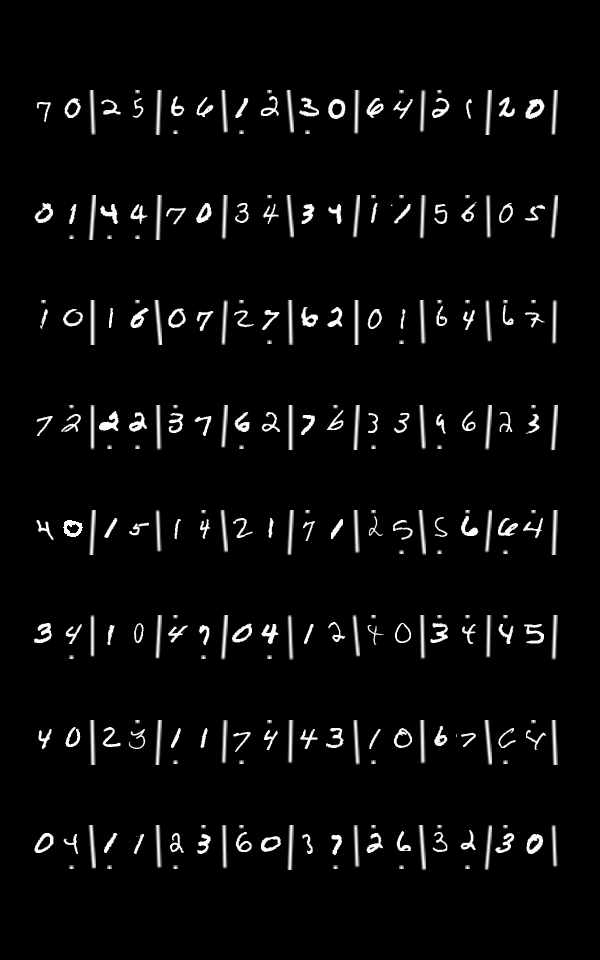 7 0 | 2 5 | 6 6 | 1 2 | 3 0 | 6 4 | 2 1 | 2 0 |
0 1 | 4 4 | 7 0 | 3 4 | 3 4 | 1 1 | 5 6 | 0 5 |
1 0 | 1 6 | 0 7 | 2 7 | 6 2 | 0 1 | 6 4 | 6 7 |
7 2 | 2 2 | 3 7 | 6 2 | 7 6 | 3 3 | 4 6 | 2 3 |
4 0 | 1 5 | 1 4 | 2 1 | 7 1 | 2 5 | 5 6 | 6 4 |
3 4 | 1 0 | 4 7 | 0 4 | 1 2 | 4 0 | 3 4 | 4 5 |
4 0 | 2 3 | 1 1 | 7 4 | 4 3 | 1 0 | 6 7 | 6 4 |
0 4 | 1 1 | 2 3 | 6 0 | 3 7 | 2 6 | 3 2 | 3 0 |